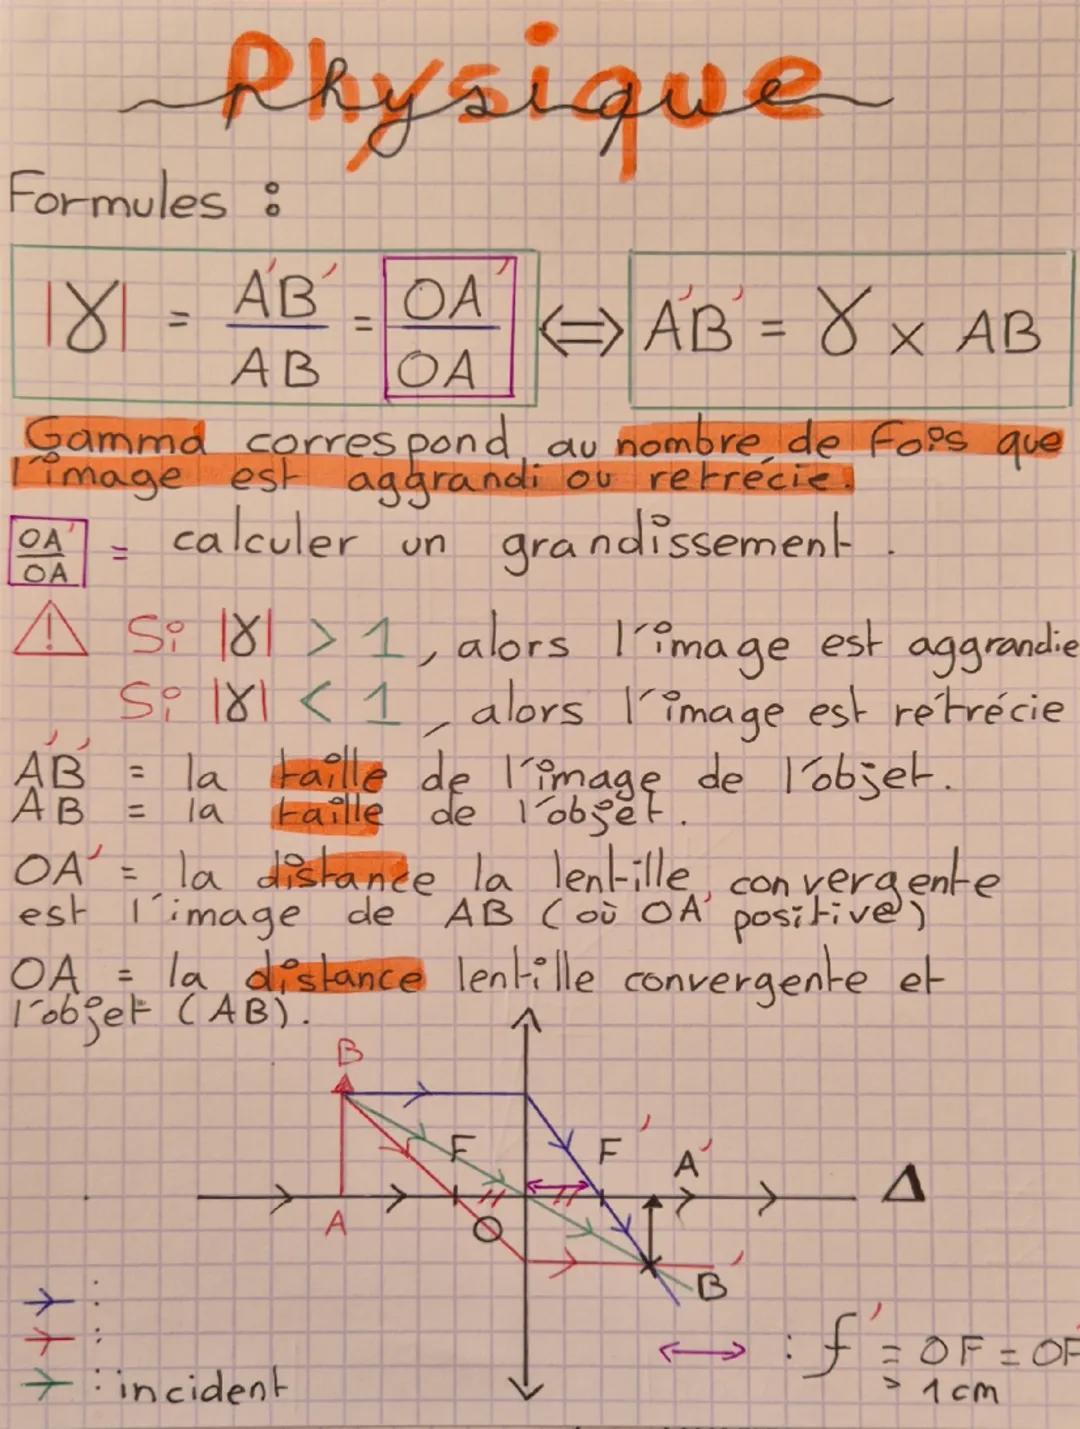 Physique
Formules :
|γ| = A'B' / AB = OA' / OA ⇔ A'B' = γ x AB
Gamma correspond au nombre de fois que
l'image est aggrandi ou retrécie.
OA' / OA = calculer un grandissement.
⚠ Si |γ| > 1, alors l'image est aggrandie
Si |γ| < 1, alors l'image est rétrécie
A'B' = la taille de l'image de l'objet.
AB = la taille de l'objet.
OA' = la distance la lentille convergente
est l'image de AB (où OA' positive)
OA = la distance lentille convergente et
l'objet (AB).
B
F F' A' Δ
A O
B'
→ :
→ :
→ : incident
↔ : f' = OF = OF'
> 1 cm